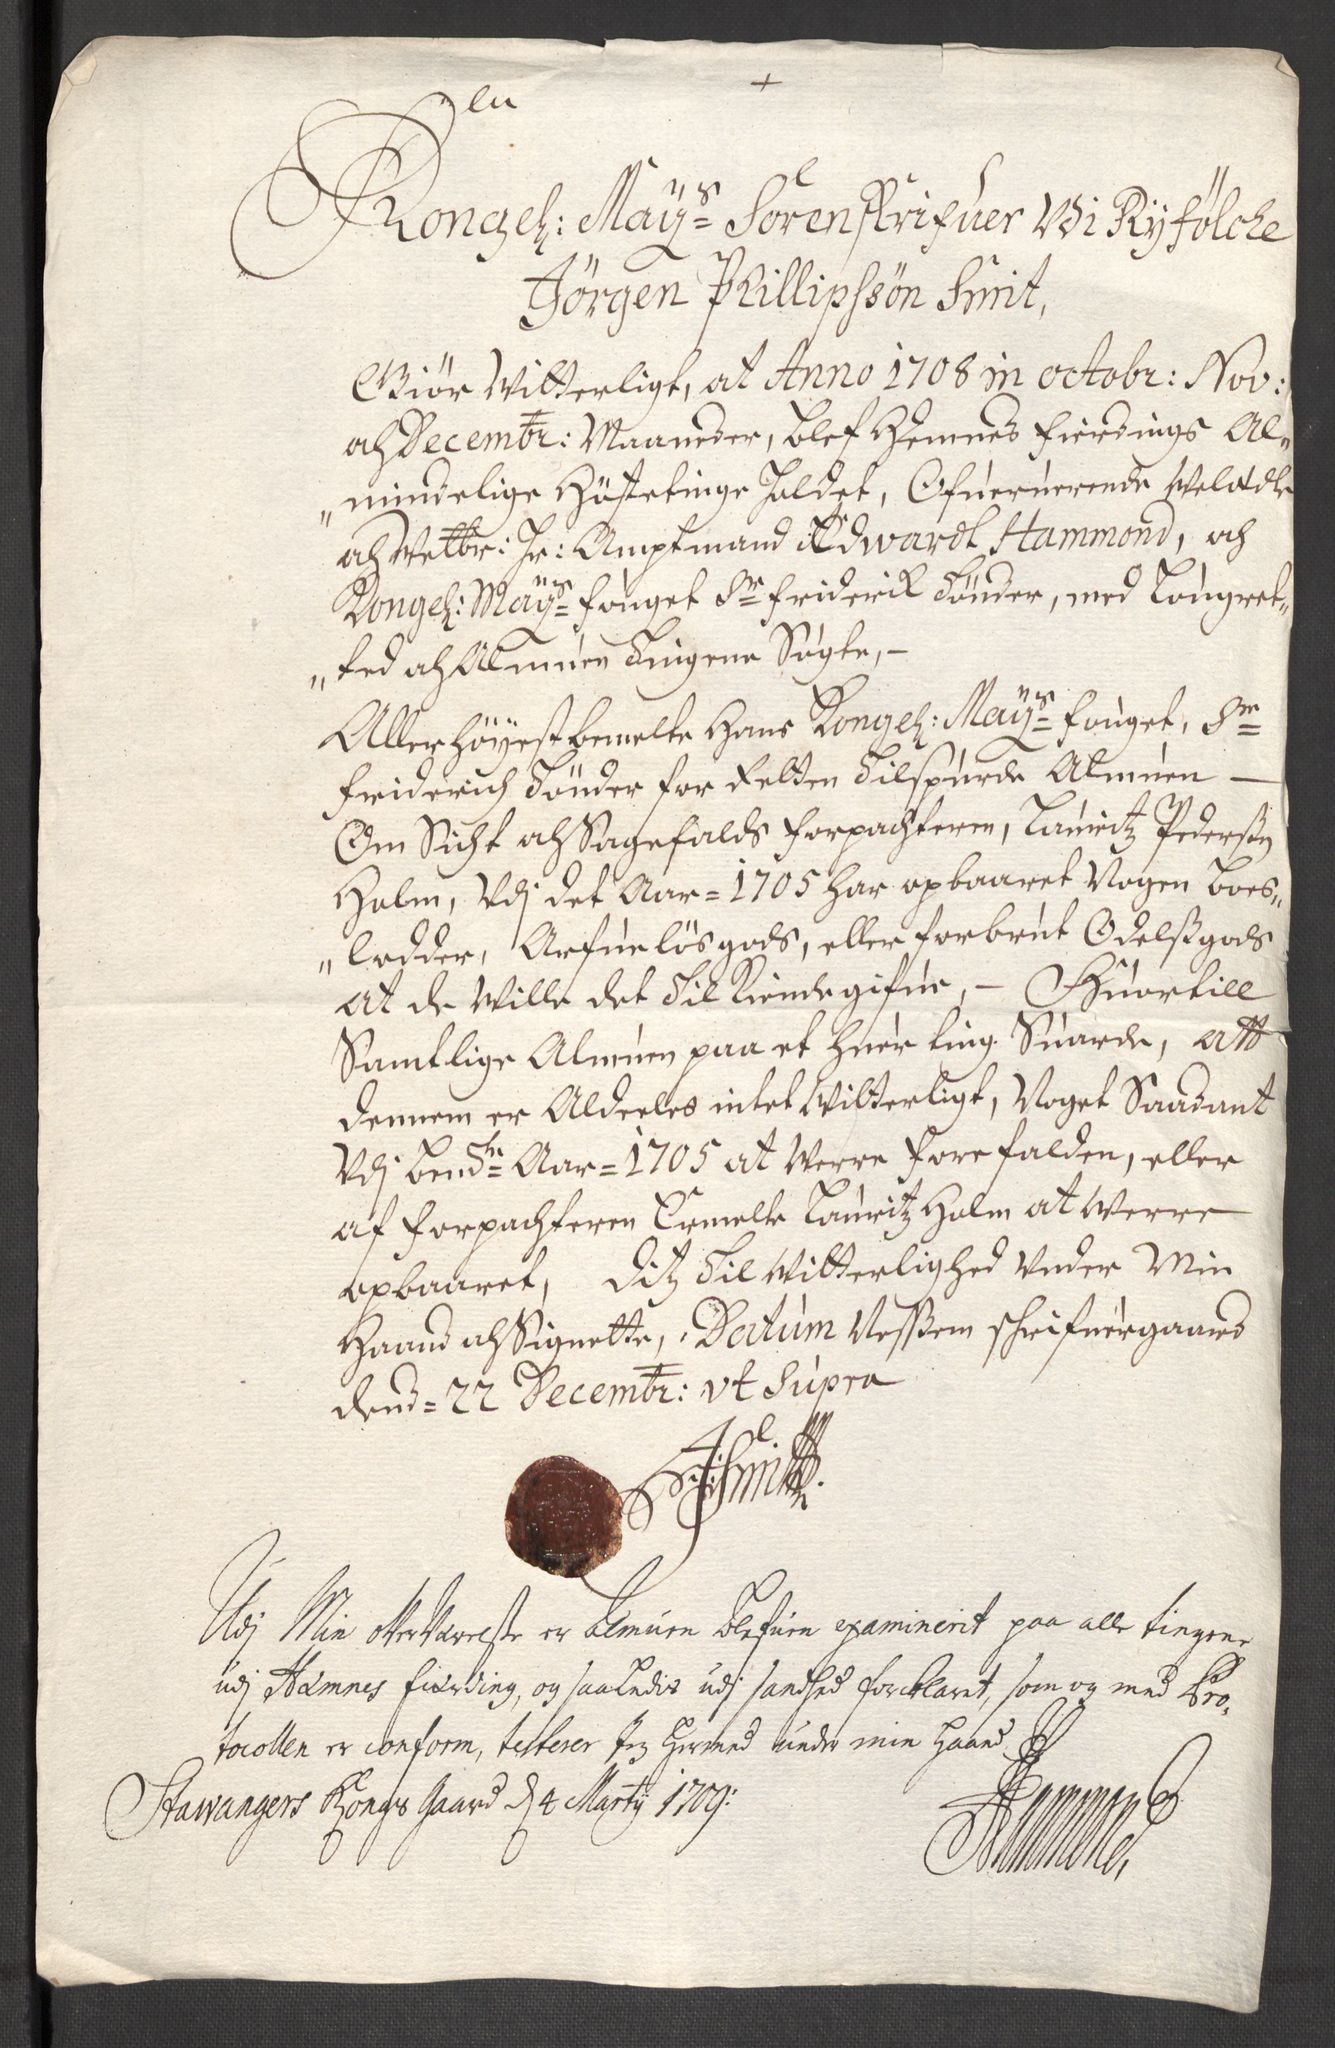 Kongel: Mayts Sorenskrifuer Vdi Ryfölche
Jörgen Phillipssön Smit,
Giör Vitterligt, at Anno 1708 in octobr: Nov:
och Decembr: Maaneder, blef Hemnes Fierdings Al„
„mindelige Höstetinge Holdet, Ofueruerende Welædle
och Velbr: Hr: Amptmand Edwardt Hammond, och
Kongel: Mayts fouget Sr Friderik Tönder, med Laugret„
„ted och Almuen Tingene Sögte,–
Allerhöyestbemelte Hans Kongel: Mayts fouget, Sr
Friderich Tönder for Retten Tilspurde Almuen –
Om Sicht och Sagefalds Forpachteren, Lauritz Pedersen
Holm, Vdj det Aar= 1705 har opbaaret Nogen Boes„
„lodder, Arfuelösgods, eller forbrut Odelssgods
at de Wille det Til Kiendegifue,– Huortill
Samtlige Almuen paa et huer ting Suarde, att
dennem er Aldeeles intet Vitterligt, Noget Saadant
Vdj bemte Aar= 1705 at Werre forefalden, eller
af forpachteren bemelte Lauritz Holm at Werre
opbaaret, Ditz Til Vitterlighed Vnder Min
Haand och Signette, Datum Nessem schrifuergaard
dend= 22 Decembr: vt Supra
JPSmitt
Udj Min Overværelse er Almuen blefuen examinerit paa alle tingene
udj Hæmnes fierding, og saaledis udj sandhed forclaret, som og med Pro„
tocollen er conform, testerer Jeg hermed under min Haand
Stawangers Kongs Gaard d 4 Martij 1709:
Hammond